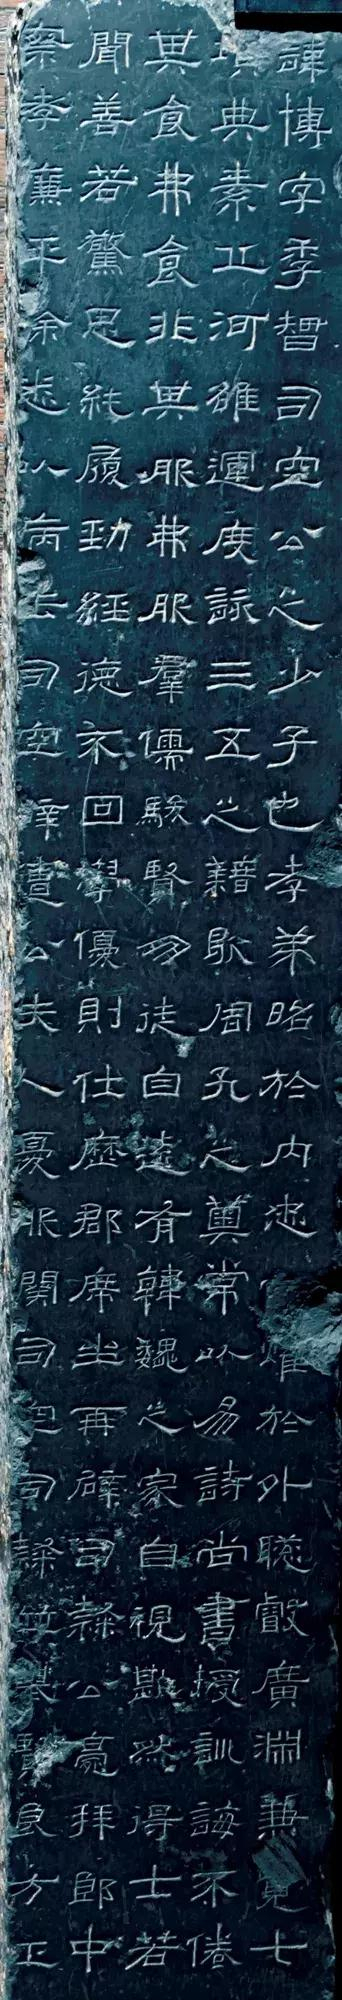 諱博字季智司空公之少子也孝弟昭於內忠耀於外聰叡廣淵兼覽七
典素丘河雒運度詠三五之籍歇周孔之奠常以易詩尚書授訓誨不倦
其食弗食非其服弗服羣儒駿賢朋徒自遠有韓魏之家自視歉然得士若
聞善若驚思純履勁經德不回學優則仕歷郡席坐再辟司隸公亮拜郎中
察孝廉平除悉以病去司空辟遭公夫人憂服闋司空司隸並舉賢良方正